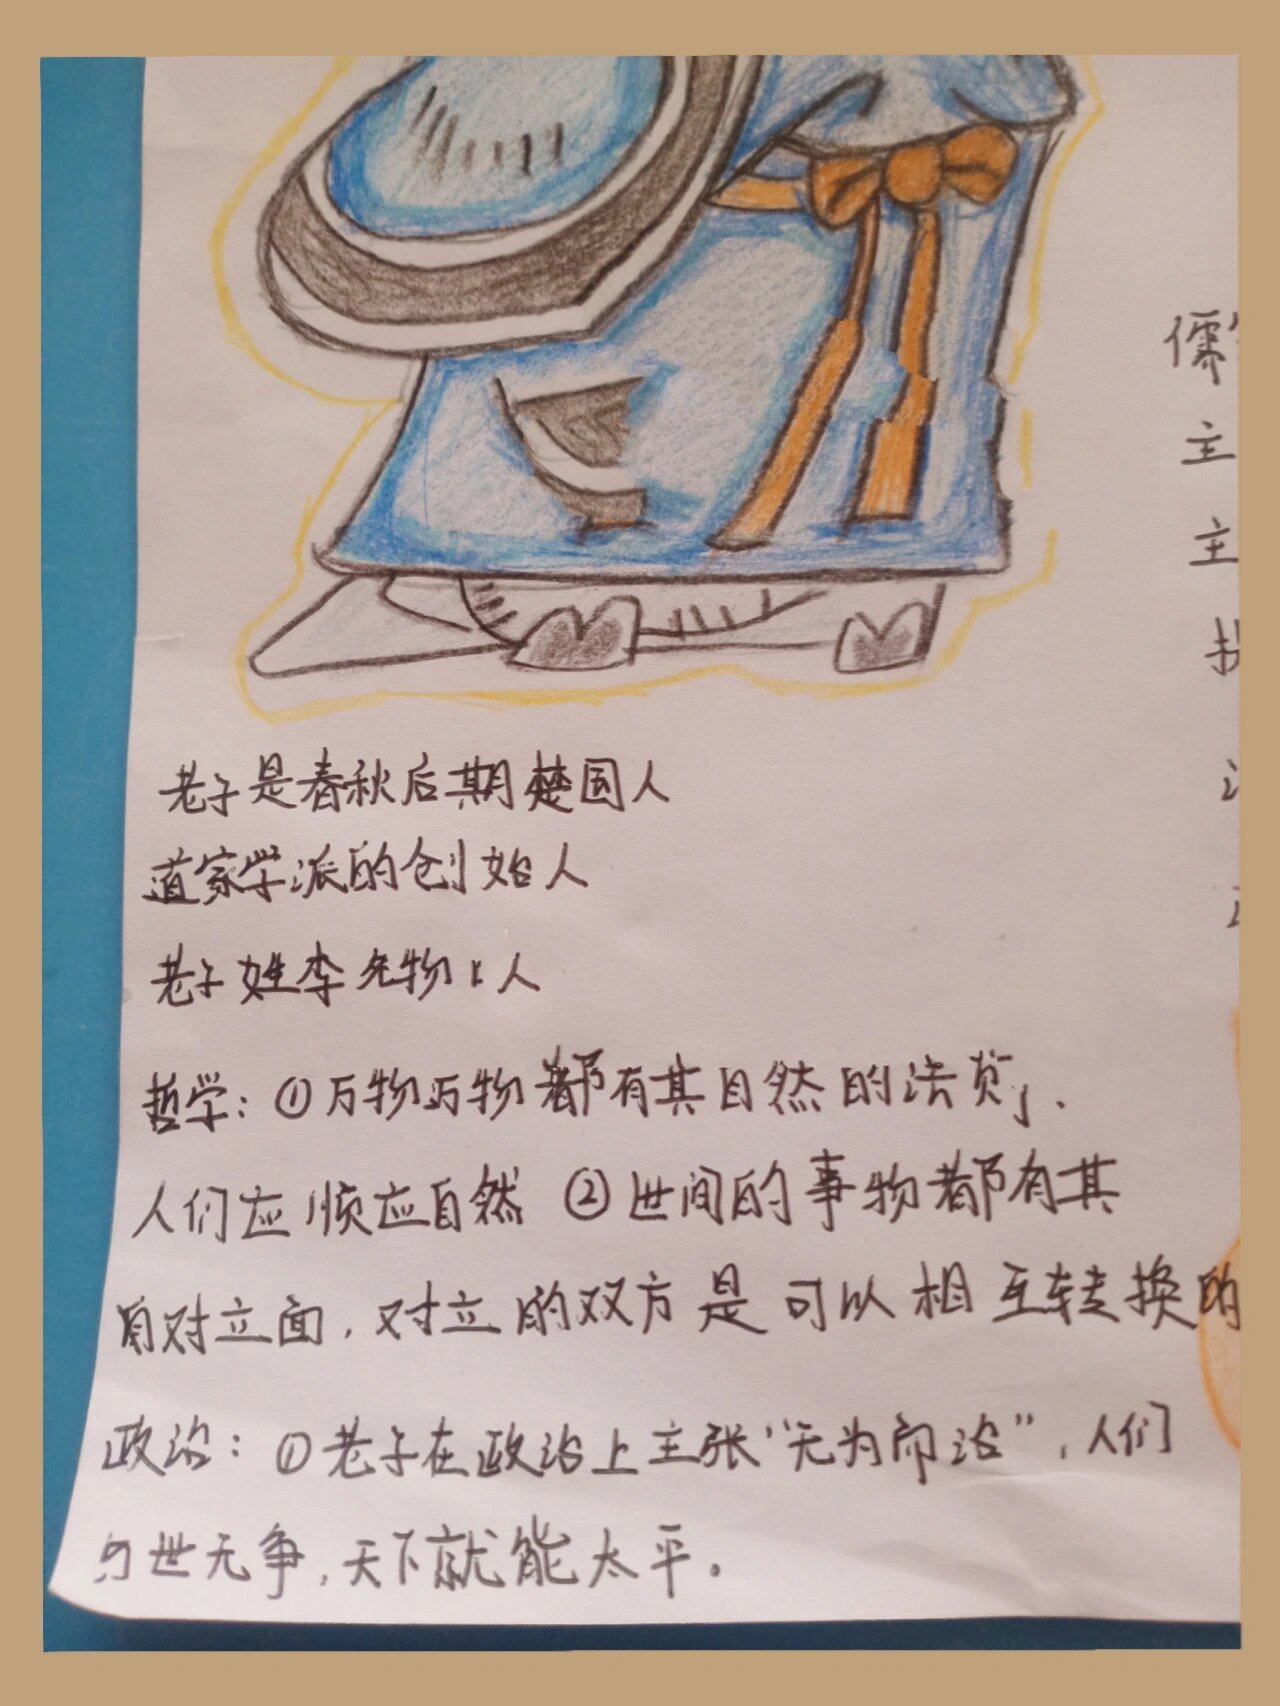 老子是春秋后期楚国人
道家学派的创始人
老子姓李 物 人
哲学：①万物万物都有其自然的法则．
人们应顺应自然 ②世间的事物都有其
自对立面，对立的双方是可以相互转换的
政治：①老子在政治上主张“无为而治”，人们
与世无争，天下就能太平。
儒
主
主